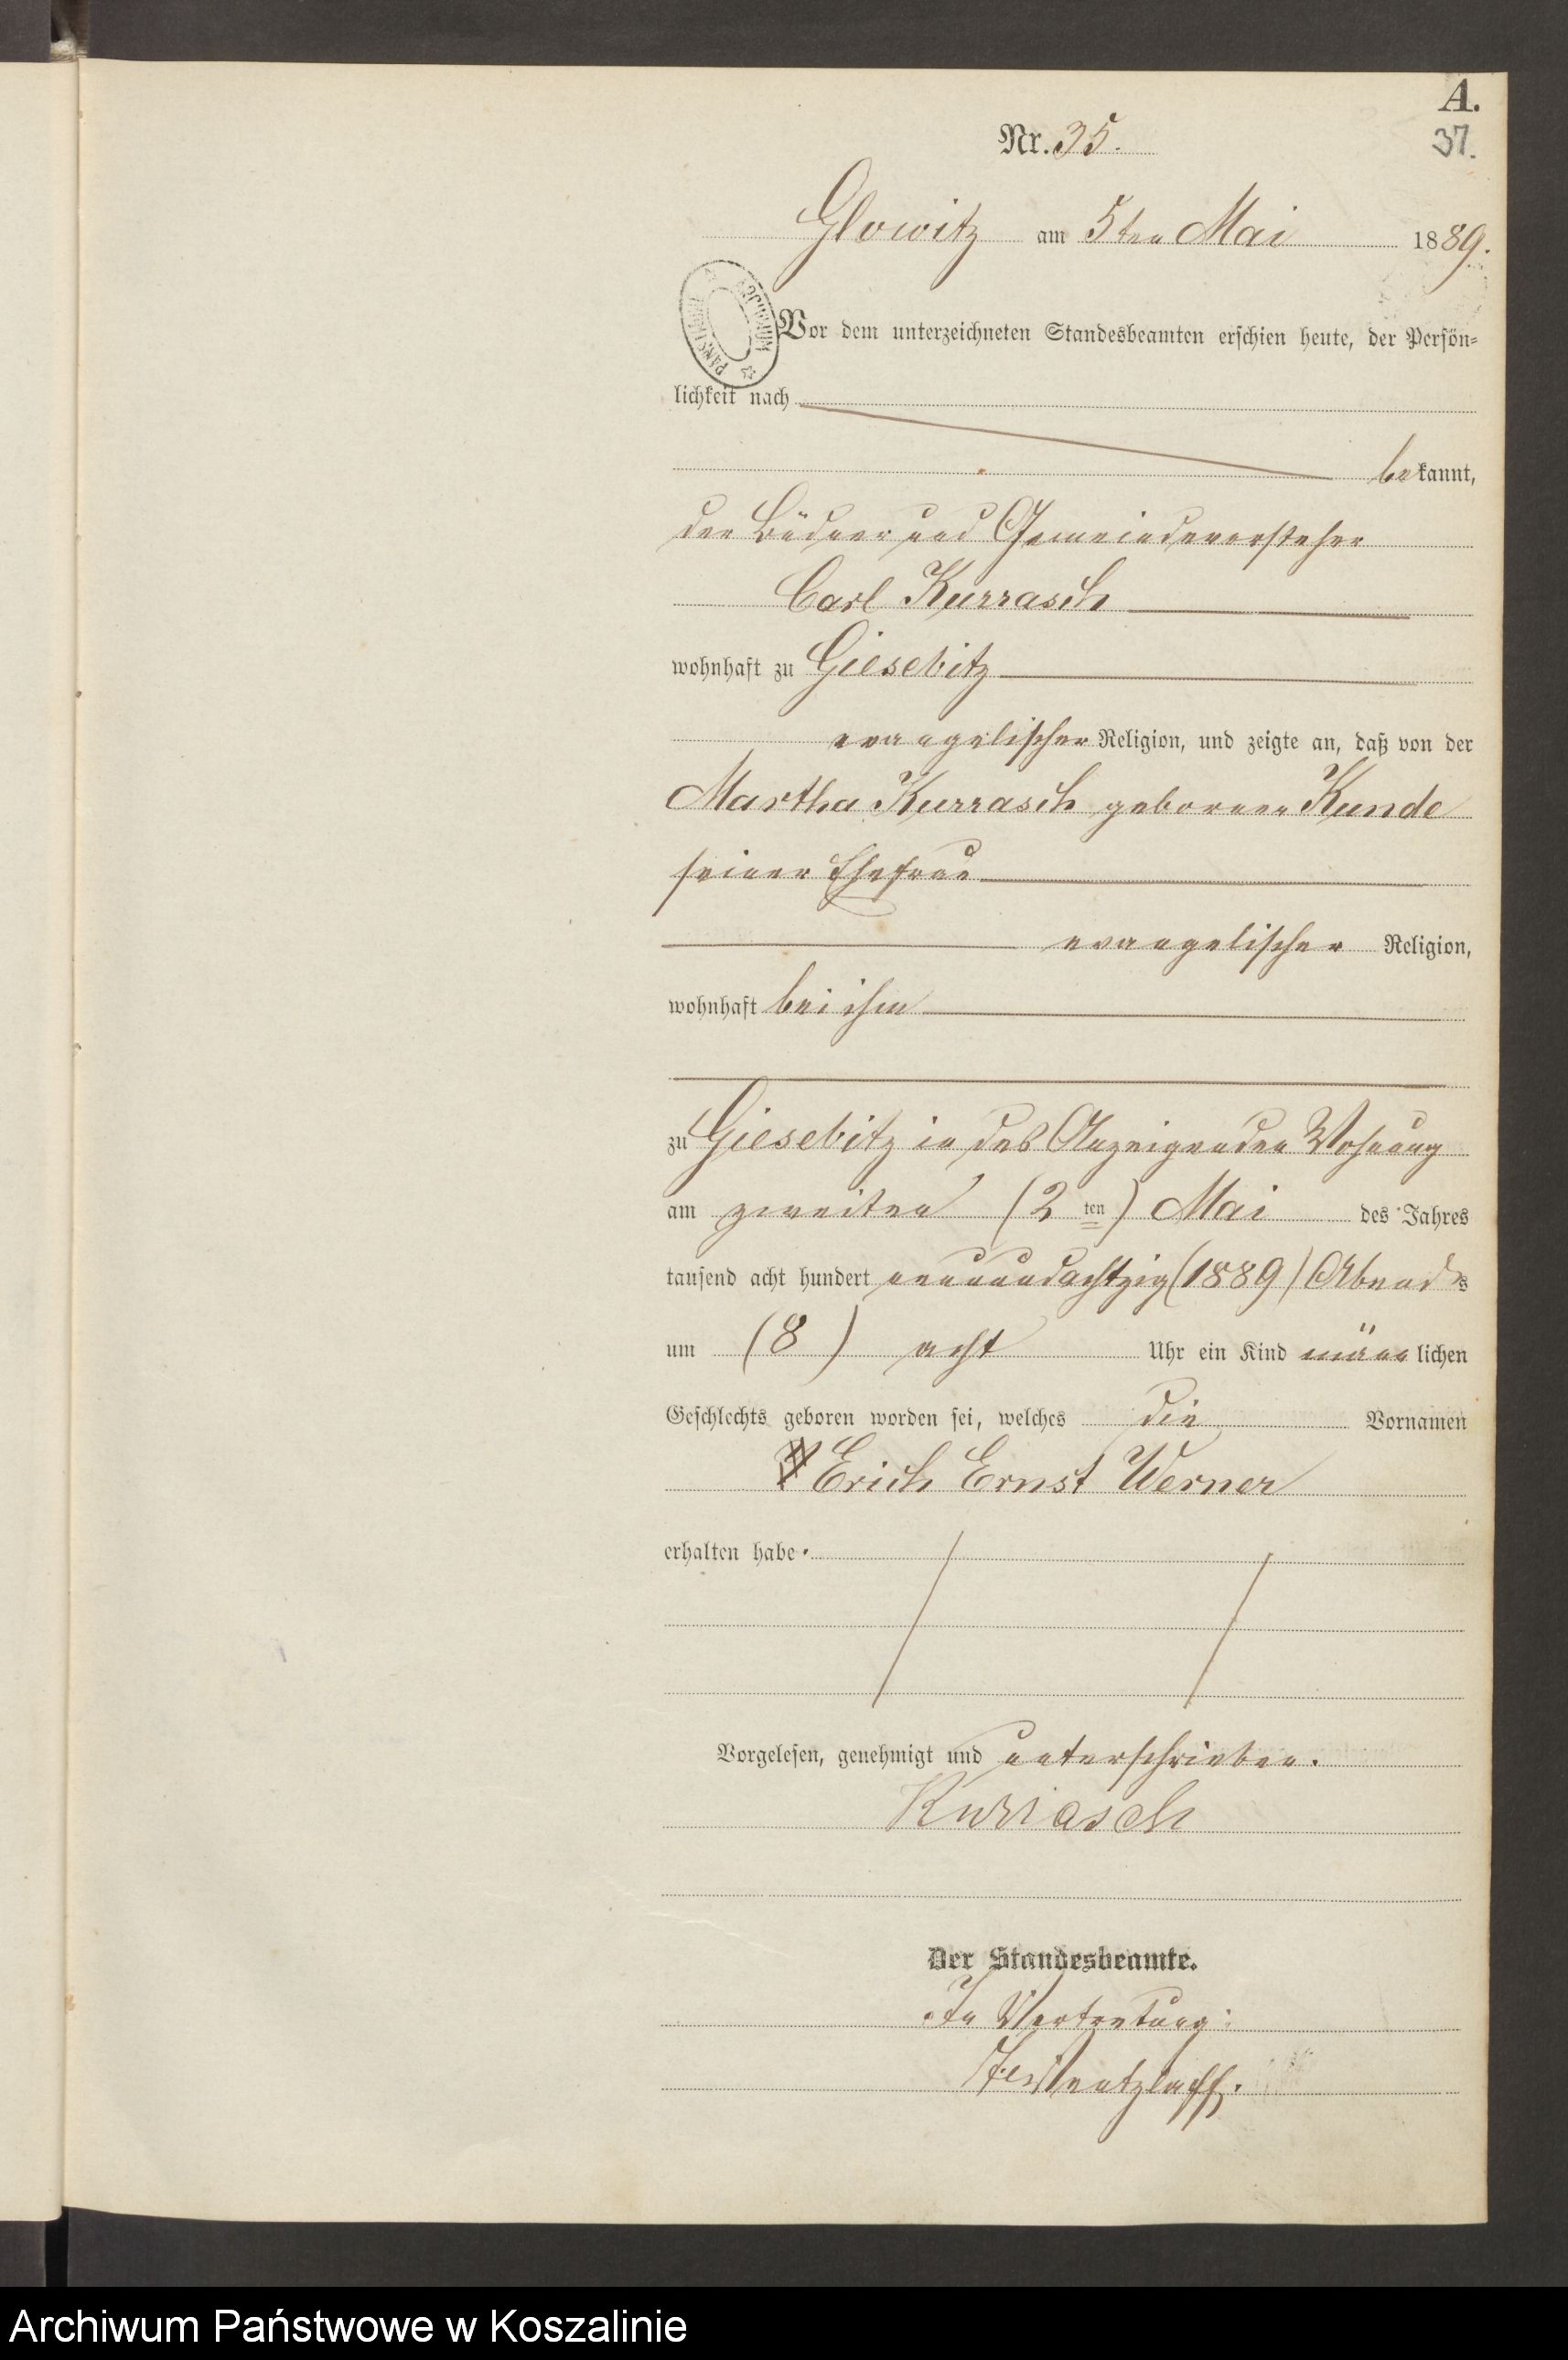 A.
Nr. 35.
37.
Glowitz am 5ten Mai 1889.
Vor dem unterzeichneten Standesbeamten erschien heute, der Persön=
lichkeit nach
bekannt,
der Büdner und Gemeindevorsteher
Carl Kurrasch
wohnhaft zu Giesebitz
evangelischer Religion, und zeigte an, daß von der
Martha Kurrasch geborner Kunde
seiner Ehefrau
evangelischer Religion,
wohnhaft bei ihm
zu Giesebitz in des Anzeigenden Wohnung
am zweiten (2ten) Mai des Jahres
tausend acht hundert neunundachtzig (1889) Abends
um (8) acht Uhr ein Kind männlichen
Geschlechts geboren worden sei, welches die Vornamen
Erich Ernst Werner
erhalten habe.
Vorgelesen, genehmigt und unterschrieben.
Kurrasch
Der Standesbeamte.
In Vertretung:
Archiwum Państwowe w Koszalinie